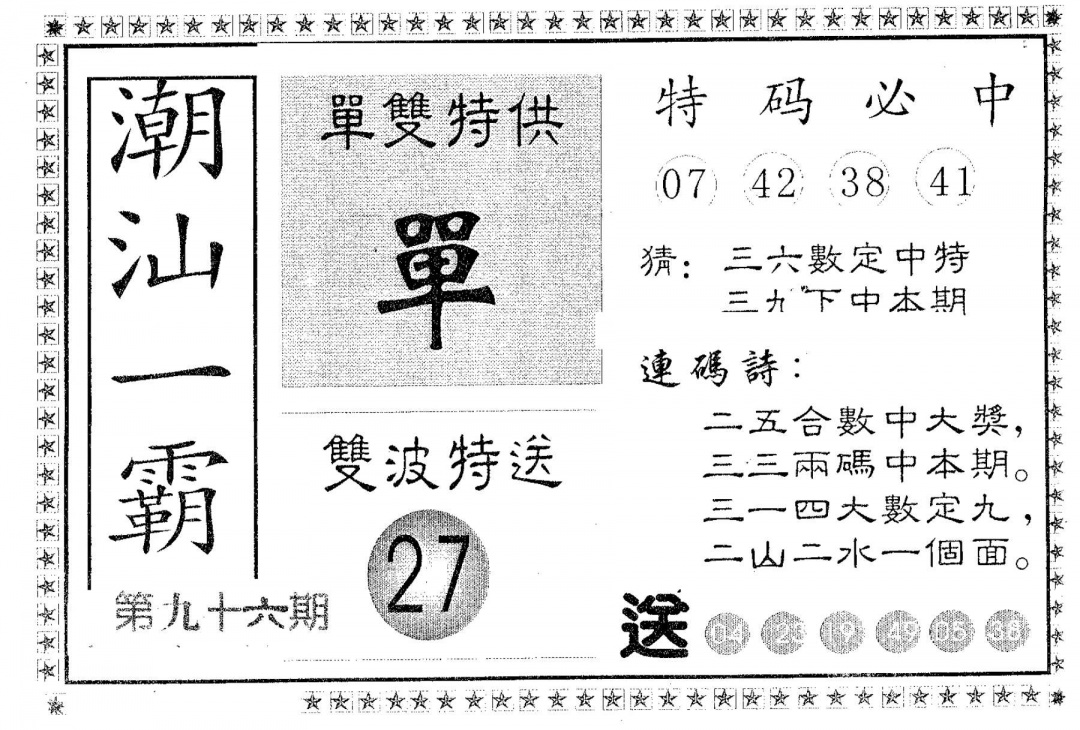 潮汕一霸
第九十六期
單雙特供
單
雙波特送
27
特码必中
07 42 38 41
猜：三六數定中特
三九下中本期
連碼詩：
二五合數中大獎，
三三兩碼中本期。
三一四大數定九，
二山二水一個面。
送 04 23 19 49 05 38